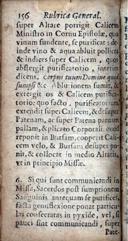 156 Rubrica General.
super Altare porrigit Calicem
Ministro in Cornu Epistolæ, quo
vinum fundente, se purificat: de-
inde vino & aqua abluit pollices
& indices super Calicem, quos
abstergit purificatorio,
dicens, Corpus tuum Domine quod
sumpsi &c. Ablutionem sumit, &
extergit os & Calicem purifica-
torio: quo facto, purificatorium
extendit super Calicem, & desuper
Patenam, ac super Patenam parvam
pallam, & plicato Corporali
reponit in Bursam, cooperit Cali-
cem velo, & Bursam desuper po-
nit, & collocat in medio Altaris,
ut in principio Missæ.
6. Si qui sunt communicandi in
Missa, Sacerdos post sumptionem
Sanguinis, antequam se purificet,
facta genuflexione ponat particu-
las consecratas in pyxide, vel, si
pauci sunt communicandi, super
Pate-